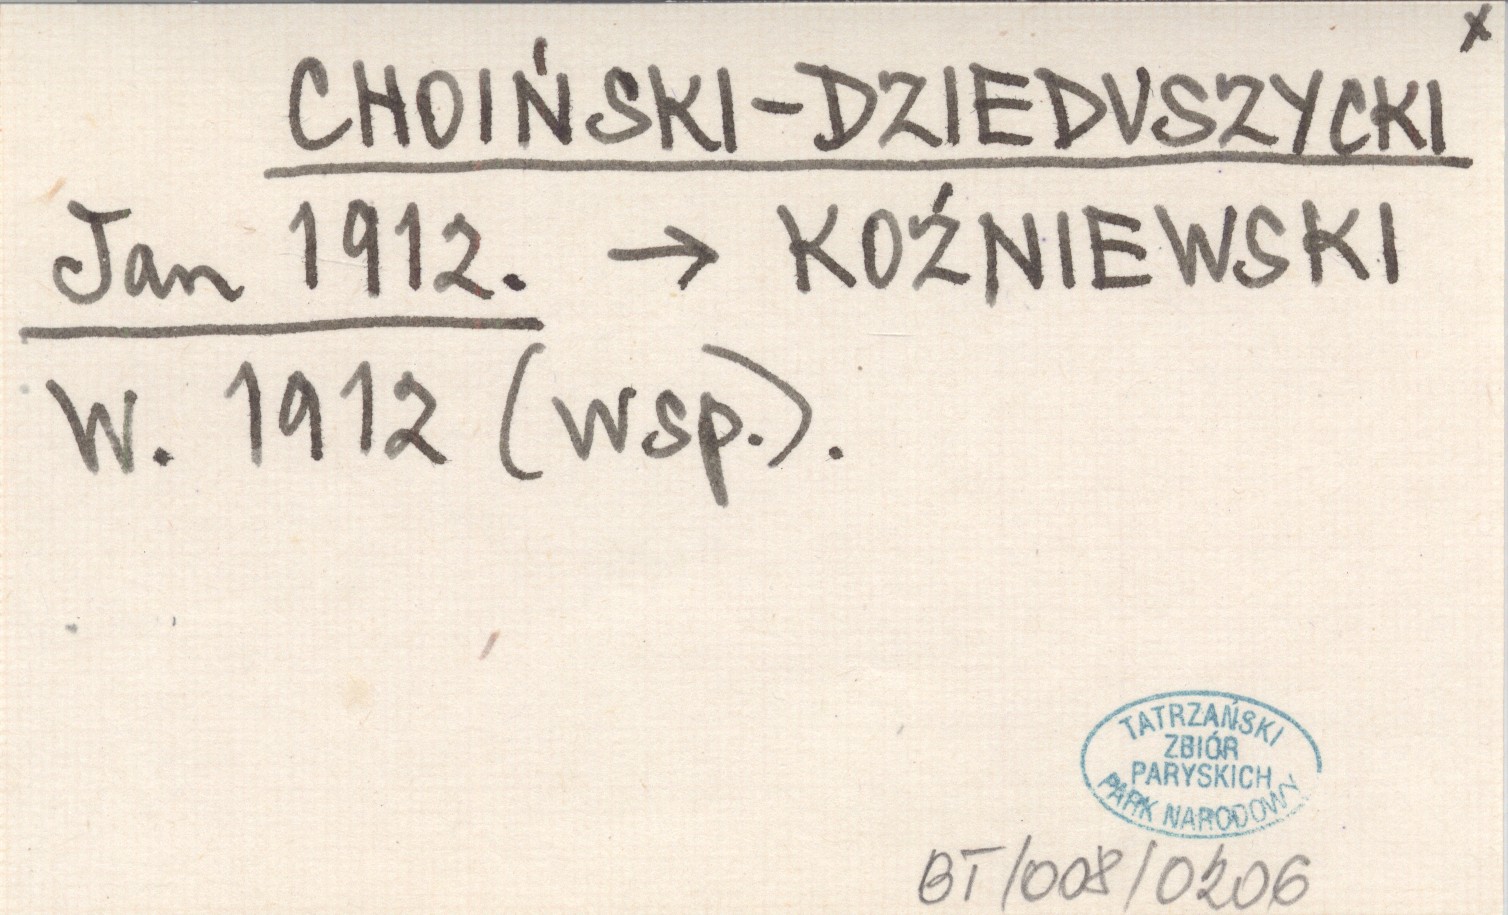 x
CHOIŃSKI-DZIEDUSZYCKI
Jan 1912. → KOŹNIEWSKI
W. 1912 (wsp.).
TATRZAŃSKI
ZBIÓR
PARYSKICH
PARK NARODOWY
BT/008/0206